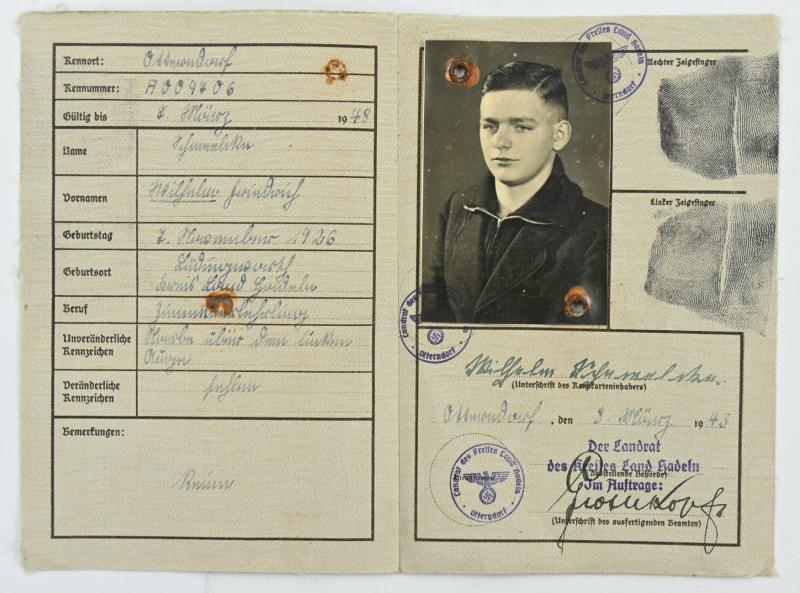 Kennort: Otterndorf
Kennummer: A 009406
Gültig bis 7. März 1948
Name
Vornamen Wilhelm Friedrich
Geburtstag 7. November 1926
Geburtsort Lüdingworth
Kreis Land Hadeln
Beruf Zimmererlehrling
Unveränderliche Kennzeichen Narbe über dem linken Auge
Veränderliche Kennzeichen fehlen
Bemerkungen:
Keine
Landrat des Kreises Land Hadeln
Otterndorf
Rechter Zeigefinger
Linker Zeigefinger
Landrat des Kreises Land Hadeln
Otterndorf
Wilhelm
(Unterschrift des Kennkarteninhabers)
Otterndorf, den 8. März 1943
Der Landrat
des Kreises Land Hadeln
(Ausstellende Behörde)
Im Auftrage:
(Unterschrift des ausfertigenden Beamten)
Landrat des Kreises Land Hadeln
Otterndorf